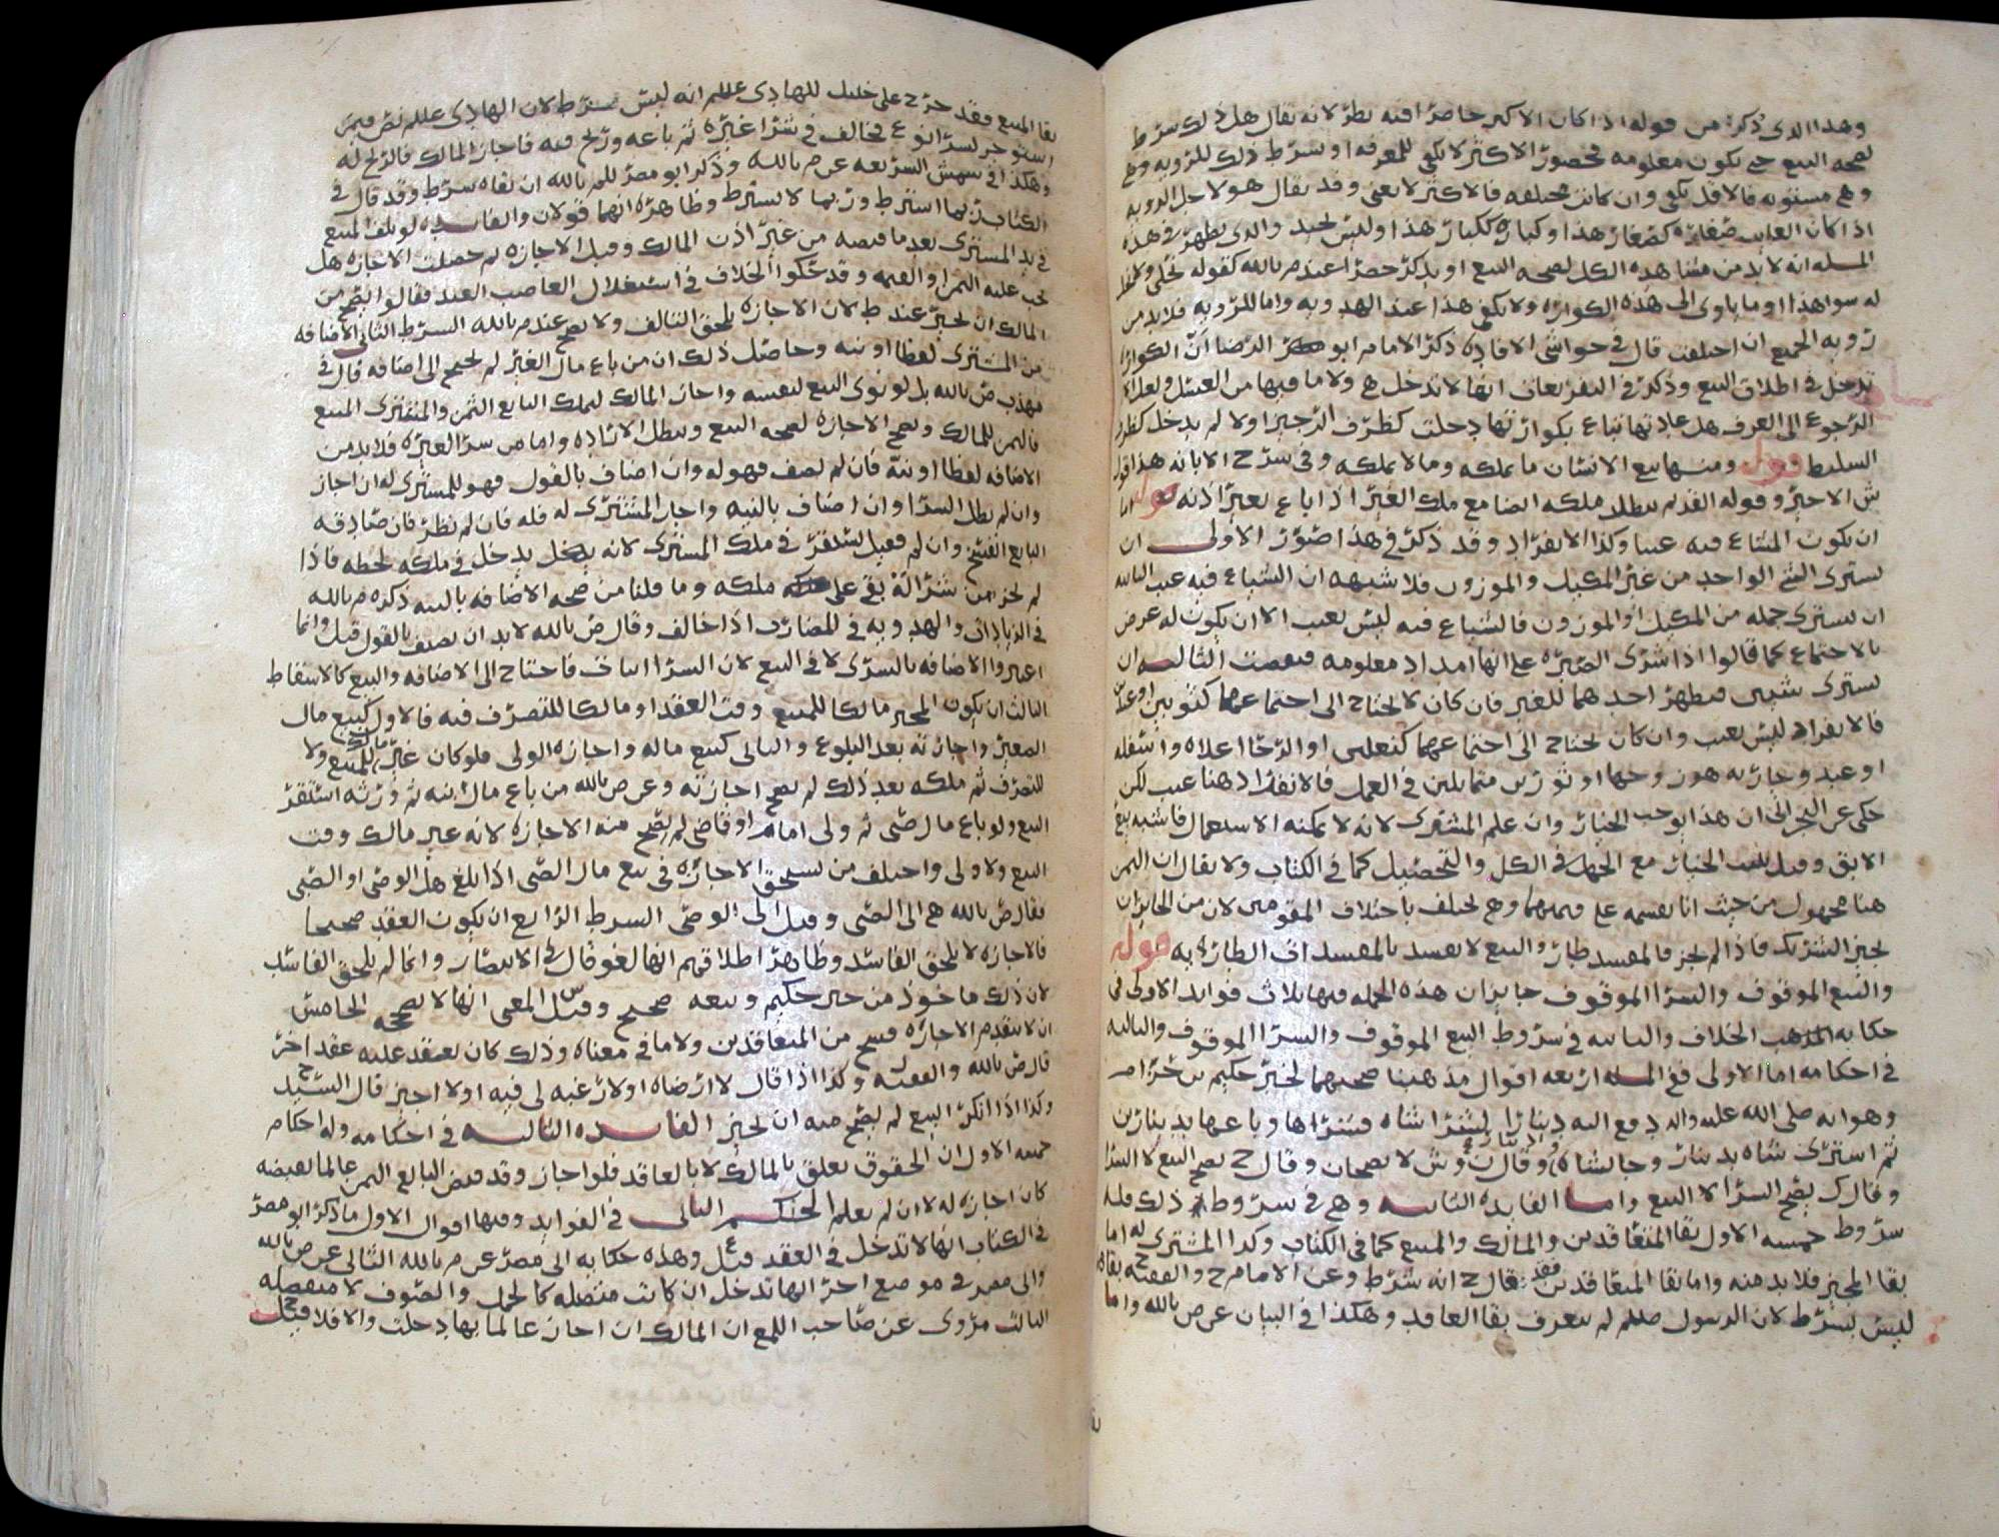 وهذا الذي ذكره من قوله اذا كان الاكبر حاضرا فيه نظر لانه يقال هل ذلك شرط
لصحه البيع حتى يكون معلومه فحضور الاكثر لا يكفي للمعرفه او شرط ذلك للرويه وهي
وهي مستويه فالاقل يكفي وان كانت مختلفه فالاكثر لا يغني وقد يقال هو لاجل الرويه
اذا كان الغايب صغاره كصغار هذا وكباره ككبار هذا وليس بجيد والذي يظهر في هذه
المسله انه لا بد من مشاهده الكل لصحه البيع او يذكر حصرا عند م بالله كقوله نحلي ولا نحل
له سواهذا او ما ياوى الى هذه الكواره ولا يكفي هذا عند الهدويه واما للرويه فلا بد من
رويه الجميع ان اختلفت قال في حواشي الافاده ذكر الامام ابو الرضا ان الكوارا
تدخل في اطلاق البيع وذكر في التفريعات انها لا تدخل هي ولا ما فيها من العسل ولعل
الرجوع الى العرف هل عادتها تباع بكوارتها دخلت كظرف الزجير اولا لم يدخل كظرف
السليط قوله ومنها بيع الانسان ما يملكه وما لا يملكه وفي شرح الابانه هذا قول
ش الاخير وقوله القديم يبطل ملكه ايضا مع ملك الغير اذا باع بغير اذنه قوله اما
ان يكون المشاع فيه عيبا وكذا الانفراد وقد ذكر في هذا صور الاولى ان
يسترى الشي الواحد من غير المكيل والموزون فلا شبهه ان الشياع فيه عيب الثانيه
ان يسترى جمله من المكيل او الموزون فالشياع فيه ليس بعيب الا ان يكون له غرض
بالاجتماع كما قالوا اذا شرى الصبره على انها امداد معلومه فنقصت الثالثه ان
يسترى شيين فيظهر احدهما للغير فان كان لا يحتاج الى اجتماعهما كثوبين او عبدين
فالانفراد ليس بعيب وان كان يحتاج الى اجتماعهما كنعلين او الرحا اعلاه واسفله
او عبد وجاريه هو زوجها او ثورين متماثلين في العمل فالانفراد هنا عيب لكن
حكى عن النجراني ان هذا يوجب الخيار وان علم المشترى لانه لا يمكنه الاستعمال فاشبه بيع
الابق وقيل يثبت الخيار مع الجهل في الكل والتحصيل كما في الكتاب ولا يقال ان الثمن
هنا مجهول من حيث انا نقسمه على قيمتهما وهي تختلف باختلاف المقومين لان من الجايز ان
يجيز الشريك فاذا لم يجز فالمفسد طار والبيع لا يفسد بالمفسدات الطاريه به قوله
والبيع الموقوف والشرا الموقوف جايزان هذه الجمله فيها ثلاث فوايد الاولى في
حكايه المذهب الخلاف والثانيه في شروط البيع الموقوف والشرا الموقوف والثالثه
في احكامه اما الاولى ففي المسله اربعه اقوال مذهبنا صحتهما لخبر حكيم بن حزام
وهو انه صلى الله عليه واله دفع اليه دينارا ليشترا شاه فشراها وباعها بدينارين
ثم استرى شاه بدينار وجا بشاه ودينار وقال ن وش لا يصحان وقال ح يصح البيع لا الشرا
وقال ك يصح الشرا لا البيع واما الفايده الثانيه وهي في شروط ذلك فله
شروط خمسه الاول بقا المتعاقدين والمالك والمبيع كما في الكتاب وكذا المشترى له اما
بقا المجيز فلا بد منه واما بقا المتعاقدين فقد قال ح انه شرط وعن الامام ح والفقيه ح بقاه
ليس بشرط لان الرسول صللم لم يتعرف بقا العاقد وهكذا في البيان عن ص بالله واما
بقا المبيع فقد خرج علي خليل للهادي عللم انه ليس بشرط لان الهادي عللم نص فيمن
استوجر لشرا نوع فخالف في شرا غيره ثم باعه وربح فيه فاجاز المالك فالربح له
وهكذا في شمس الشريعه عن م بالله وذكر ابو مضر للم بالله ان بقاه شرط وقد قال في
الكتاب ربما اشترط وربما لا يشترط وظاهره انهما قولان والفايده لو تلف المبيع
في يد المسترى بعد ما قبضه من غير اذن المالك وقبل الاجازه ثم حصلت الاجازه هل
يجب عليه الثمن او القيمه وقد حكوا الخلاف في استغلال الغاصب العبد فقالوا يصح من
المالك ان يجيز عند ط لان الاجازه تلحق التالف ولا يصح عند م بالله الشرط الثاني الاضافه
من المشترى لفظا او نيه وحاصل ذلك ان من باع مال الغير لم يحتج الى اضافه قال في
مهذب ص بالله بل لو نوى البيع لنفسه واجاز المالك ليملك البايع الثمن والمشترى المبيع
فالثمن للمالك وتصح الاجازه لصحه البيع وتبطل الاراده واما من شرا لغيره فلا بد من
الاضافه لفظا او نيه فان لم يضف فهو له وان اضاف بالقول فهو للمسترى له ان اجاز
وان لم بطل الشرا وان اضاف بالنيه واجاز المشترى له فله فان لم نظر فان صادقه
البايع انفسخ وان لم فقيل يستقر في ملك المسترى لانه يدخل في ملكه لحظه فاذا
لم يجز من شرا له بقي على ملكه وما قلنا من صحه الاضافه بالنيه ذكره م بالله
في الزيادات والهدويه في المضارب اذا خالف وقال ص بالله لا بد ان يضيف بالقول قيل وانما
اعتبروا الاضافه بالشرى لا في البيع لان الشرا اثبات فاحتاج الى الاضافه والبيع كالاسقاط
الثالث ان يكون المجيز مالكا للمبيع وقت العقد او مالكا للتصرف فيه فالاول كبيع مال
الصغير واجازته بعد البلوغ والثاني كبيع ماله واجازه الولى فلو كان غير مالك للمبيع ولا
للتصرف ثم ملكه بعد ذلك لم يصح اجازته وعن ص بالله من باع مال ابنه ثم ورثه استقر
البيع ولو باع مال صبى ثم ولى امام او قاضى لم يصح منه الاجازه لانه غير مالك وقت
البيع ولا ولى واختلف من يستحق الاجازه في بيع مال الصبى اذا بلغ هل الوصى او الصبى
فقال ص بالله هي الى الصبى وقيل الى الوصى الشرط الرابع ان يكون العقد صحيحا
فالاجازه لا تلحق الفاسد وظاهر اطلاقهم انها لغو قال في الانتصار وانما لم تلحق الفاسد
لان ذلك ماخوذ من خبر حكيم وبيعه صحيح وقيل س المعنى انها لا تصححه الخامس
ان لا يتقدم الاجازه فسخ من المتعاقدين ولا ما في معناه وذلك كان يعقد عليه عقد اخر
قال ص بالله والفقيه ل وكذا اذا قال لا ارضاه او لا رغبه لي فيه او لا اجيز قال السيد ح
وكذا اذا انكر البيع لم يصح منه ان يجيز الفايده الثالثه في احكامه وله احكام
خمسه الاول ان الحقوق تعلق بالمالك لا بالعاقد فلو اجاز وقد قبض البايع الثمن عالما بقبضه
كان اجازه له لا ان لم يعلم الحكم الثاني في الفوايد وفيها اقوال الاول ما ذكر ابو مضر
في الكتاب انها لا تدخل في العقد قيل ع وهذه حكايه ابى مضر عن م بالله الثاني عن ص بالله
وابى مضر في موضع اخر انها تدخل ان كانت متصله كالحمل والصوف لا منفصله
الثالث مروى عن صاحب اللمع ان المالك ان اجاز عالما بها دخلت والا فلا قيل ح